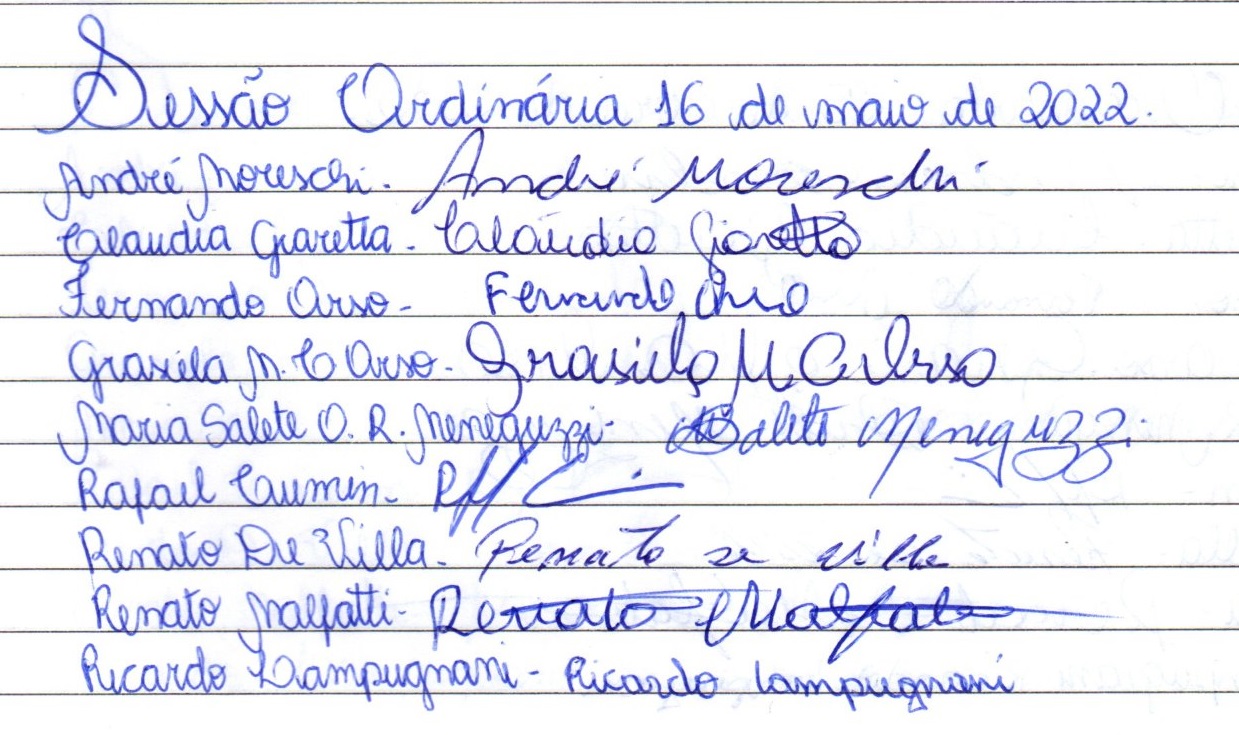 Sessão Ordinária 16 de maio de 2022.
André Moreschi. André Moreschi
Claudia Garetta. Claudia Garetta
Fernando Orso - Fernando Orso
Grasiela M. C Orso. Grasiela M C Orso
Maria Salete O. R. Meneguzzi - Salete Meneguzzi
Rafael Cumin -
Renato De Villa. Renato De Villa
Renato Malfatti - Renato Malfatti
Ricardo Lampugnani - Ricardo Lampugnani